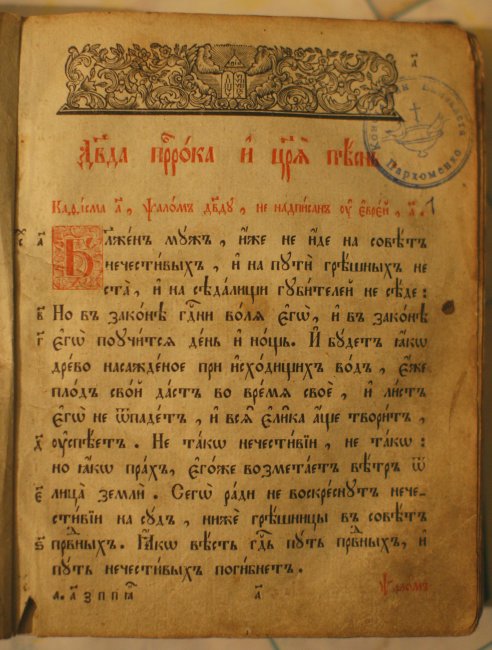 а҃
Дв҃да прⷪ҇рока и҆ цр҃ѧ̀ пѣ́снь
Каѳі́сма а҃, ѱало́мъ дв҃дꙋ, не надпи́санъ ᲂу҆ є҆врє́й, а҃.
1
а҃ Бл҃же́нъ мꙋ́жъ, и҆́же не и҆́де на совѣ́тъ
нечести́выхъ, и҆ на пꙋтѝ грѣ́шныхъ не
ста̀, и҆ на сѣда́лищи гꙋби́телей не сѣ́де:
в҃ Но въ зако́нѣ гдⷭ҇ни во́лѧ є҆гѡ̀, и҆ въ зако́нѣ
г҃ є҆гѡ̀ поꙋчи́тсѧ де́нь и҆ но́щь. И҆ бꙋ́детъ ꙗ҆́кѡ
дре́во насажде́ное при и҆схо́дищихъ во́дъ, є҆́же
пло́дъ сво́й да́стъ во вре́мѧ своѐ, и҆ ли́стъ
є҆гѡ̀ не ѿпаде́тъ, и҆ всѧ̑ є҆ли̑ка а҆́ще твори́тъ,
д҃ ᲂу҆спѣ́етъ. Не та́кѡ нечести́вїи, не та́кѡ:
но ꙗ҆́кѡ пра́хъ, є҆гѡ́же возмета́етъ вѣ́тръ ѿ
є҃ лица̀ землѝ. Сегѡ̀ ра́ди не воскре́снꙋтъ нече-
сти́вїи на сꙋ́дъ, нижѐ грѣ́шницы въ совѣ́тъ
ѕ҃ првⷣныхъ. Ꙗ҆́кѡ вѣ́сть гдⷭ҇ь пꙋ́ть првⷣныхъ, и҆
пꙋ́ть нечести́выхъ поги́бнетъ.
а҃
Ѱало́мъ
Пархоменко